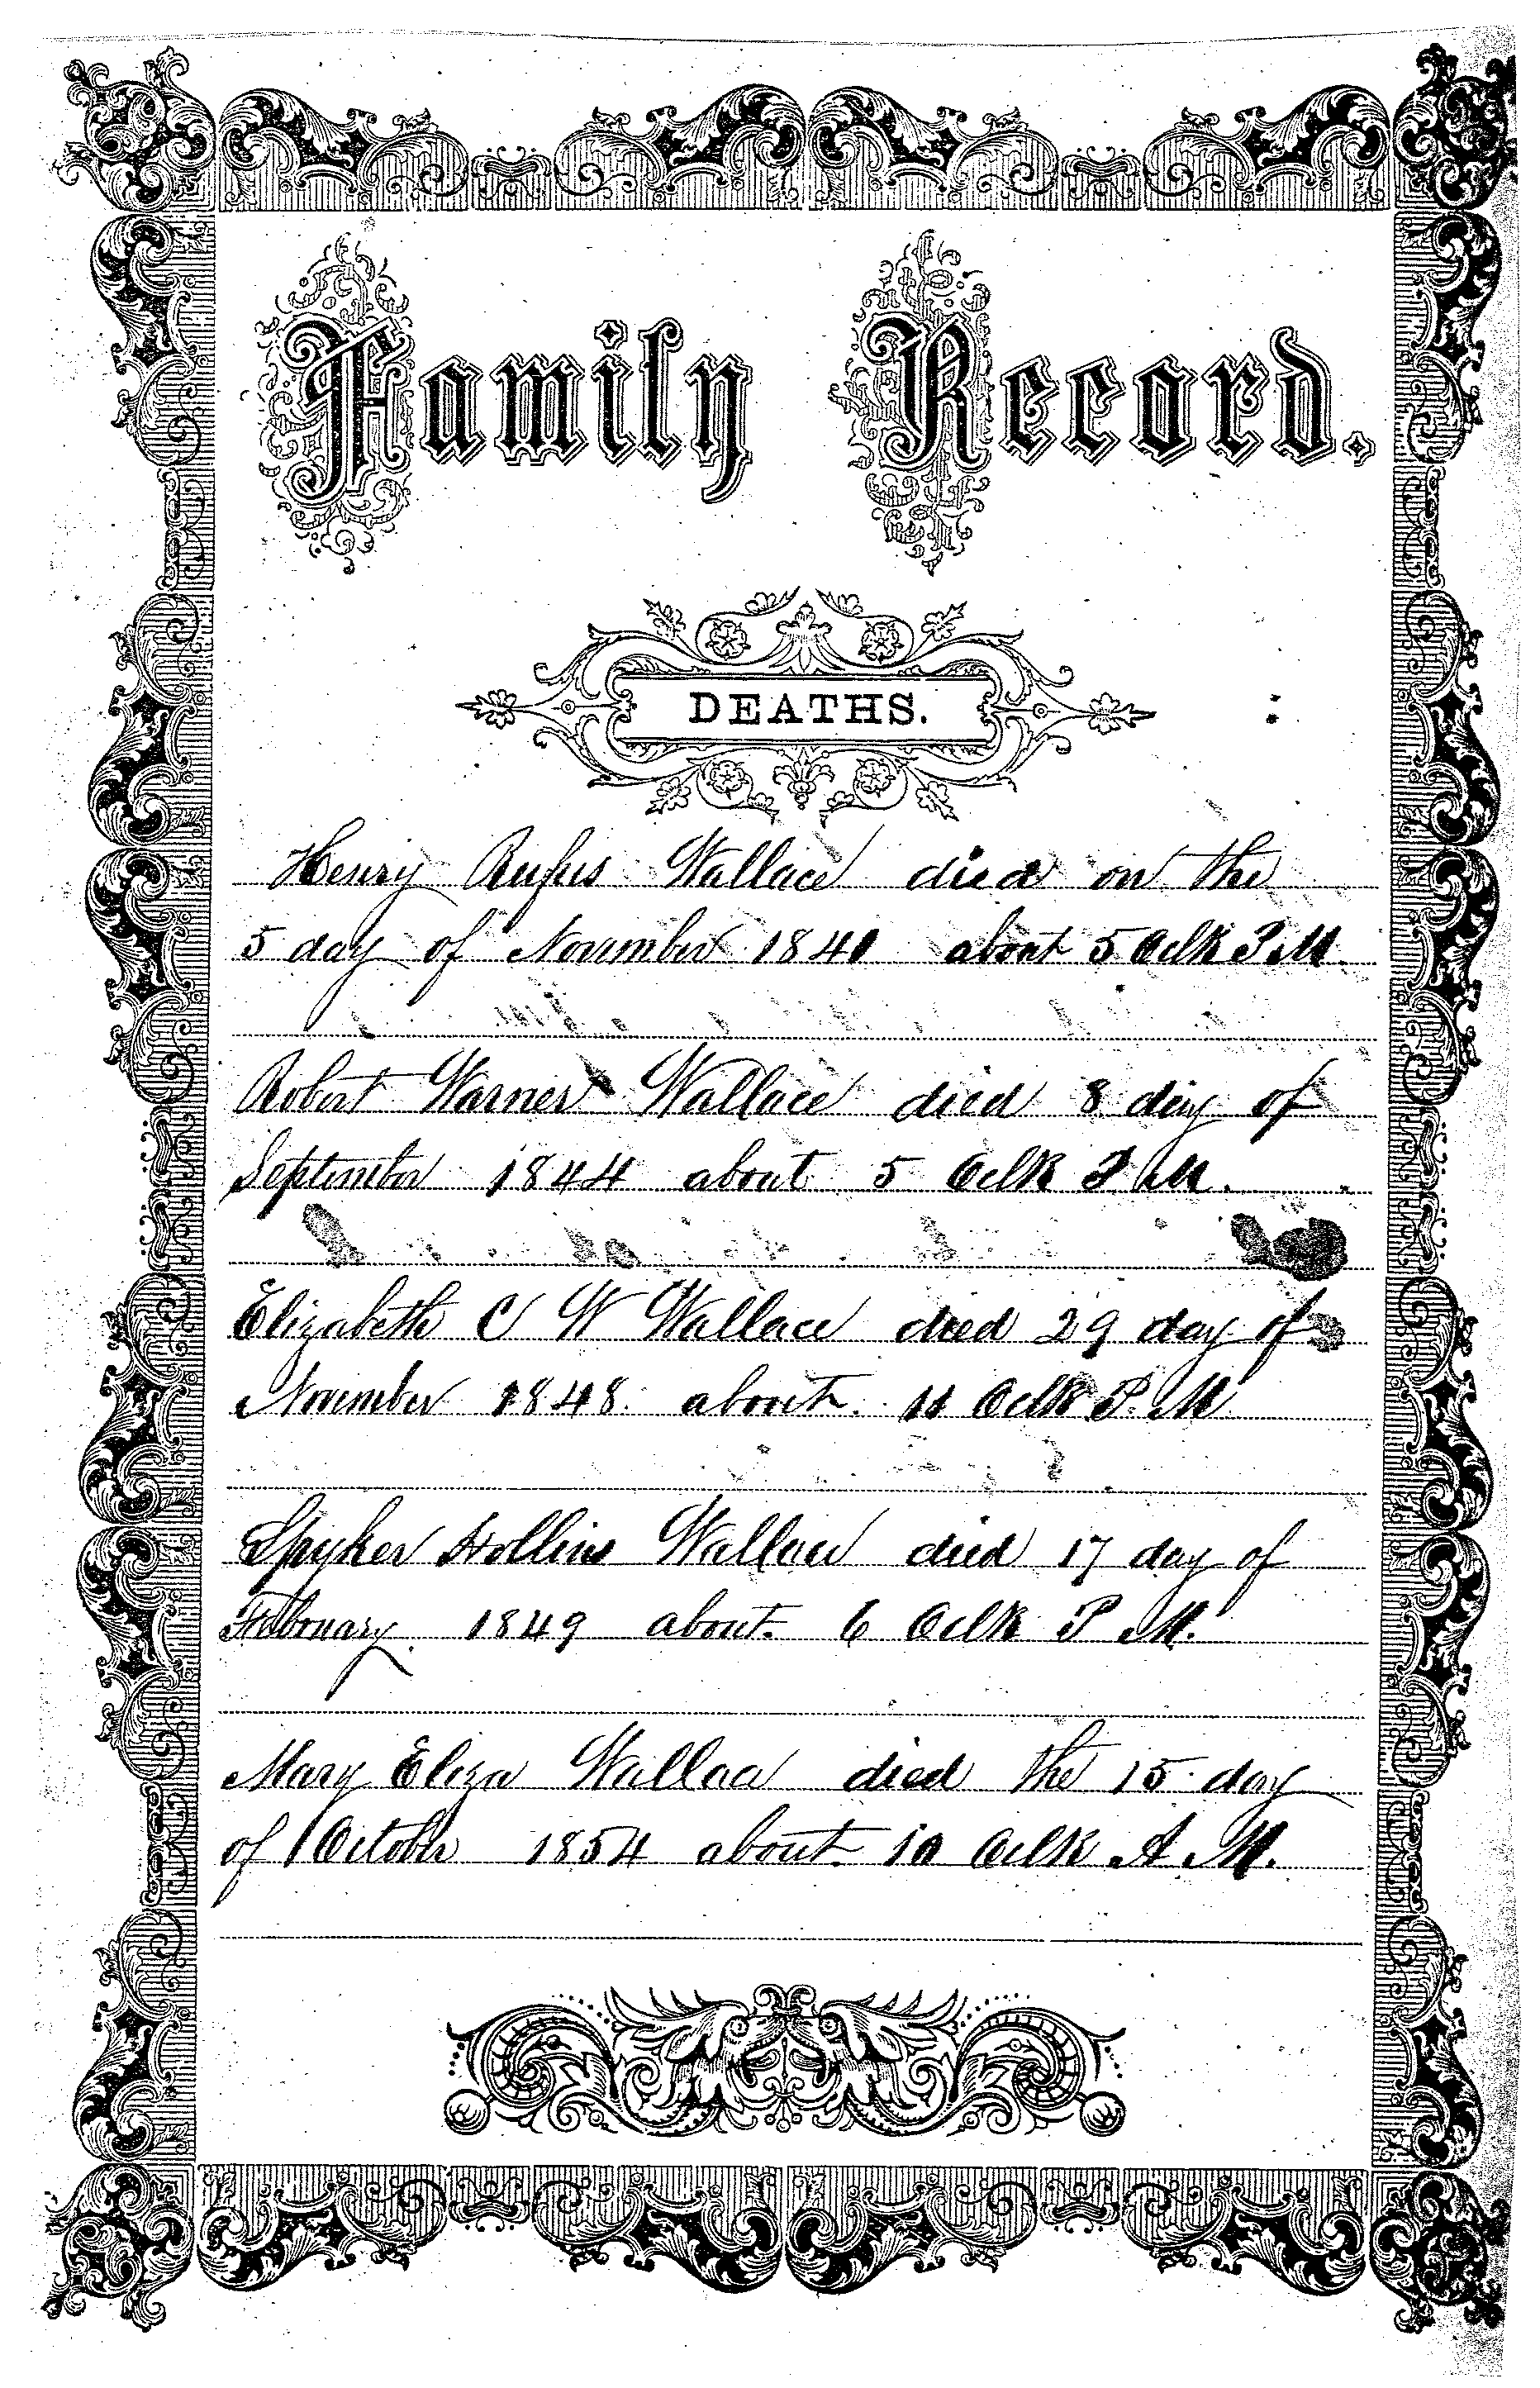 Family Record.
DEATHS.
Henry Rufus Wallace died on the
5 day of November 1840 about 5 Oclk P.M.
Robert Warner Wallace died 8 day of
September 1844 about 5 Oclk P M.
Elizabeth C W Wallace died 29 day of
November 1848. about. 11 Oclk P. M
Spyker Hollins Wallace died 17 day of
February. 1849 about. 6 Oclk P M.
Mary Eliza Wallace died the 15 day
of October 1854 about 10 Oclk A M.